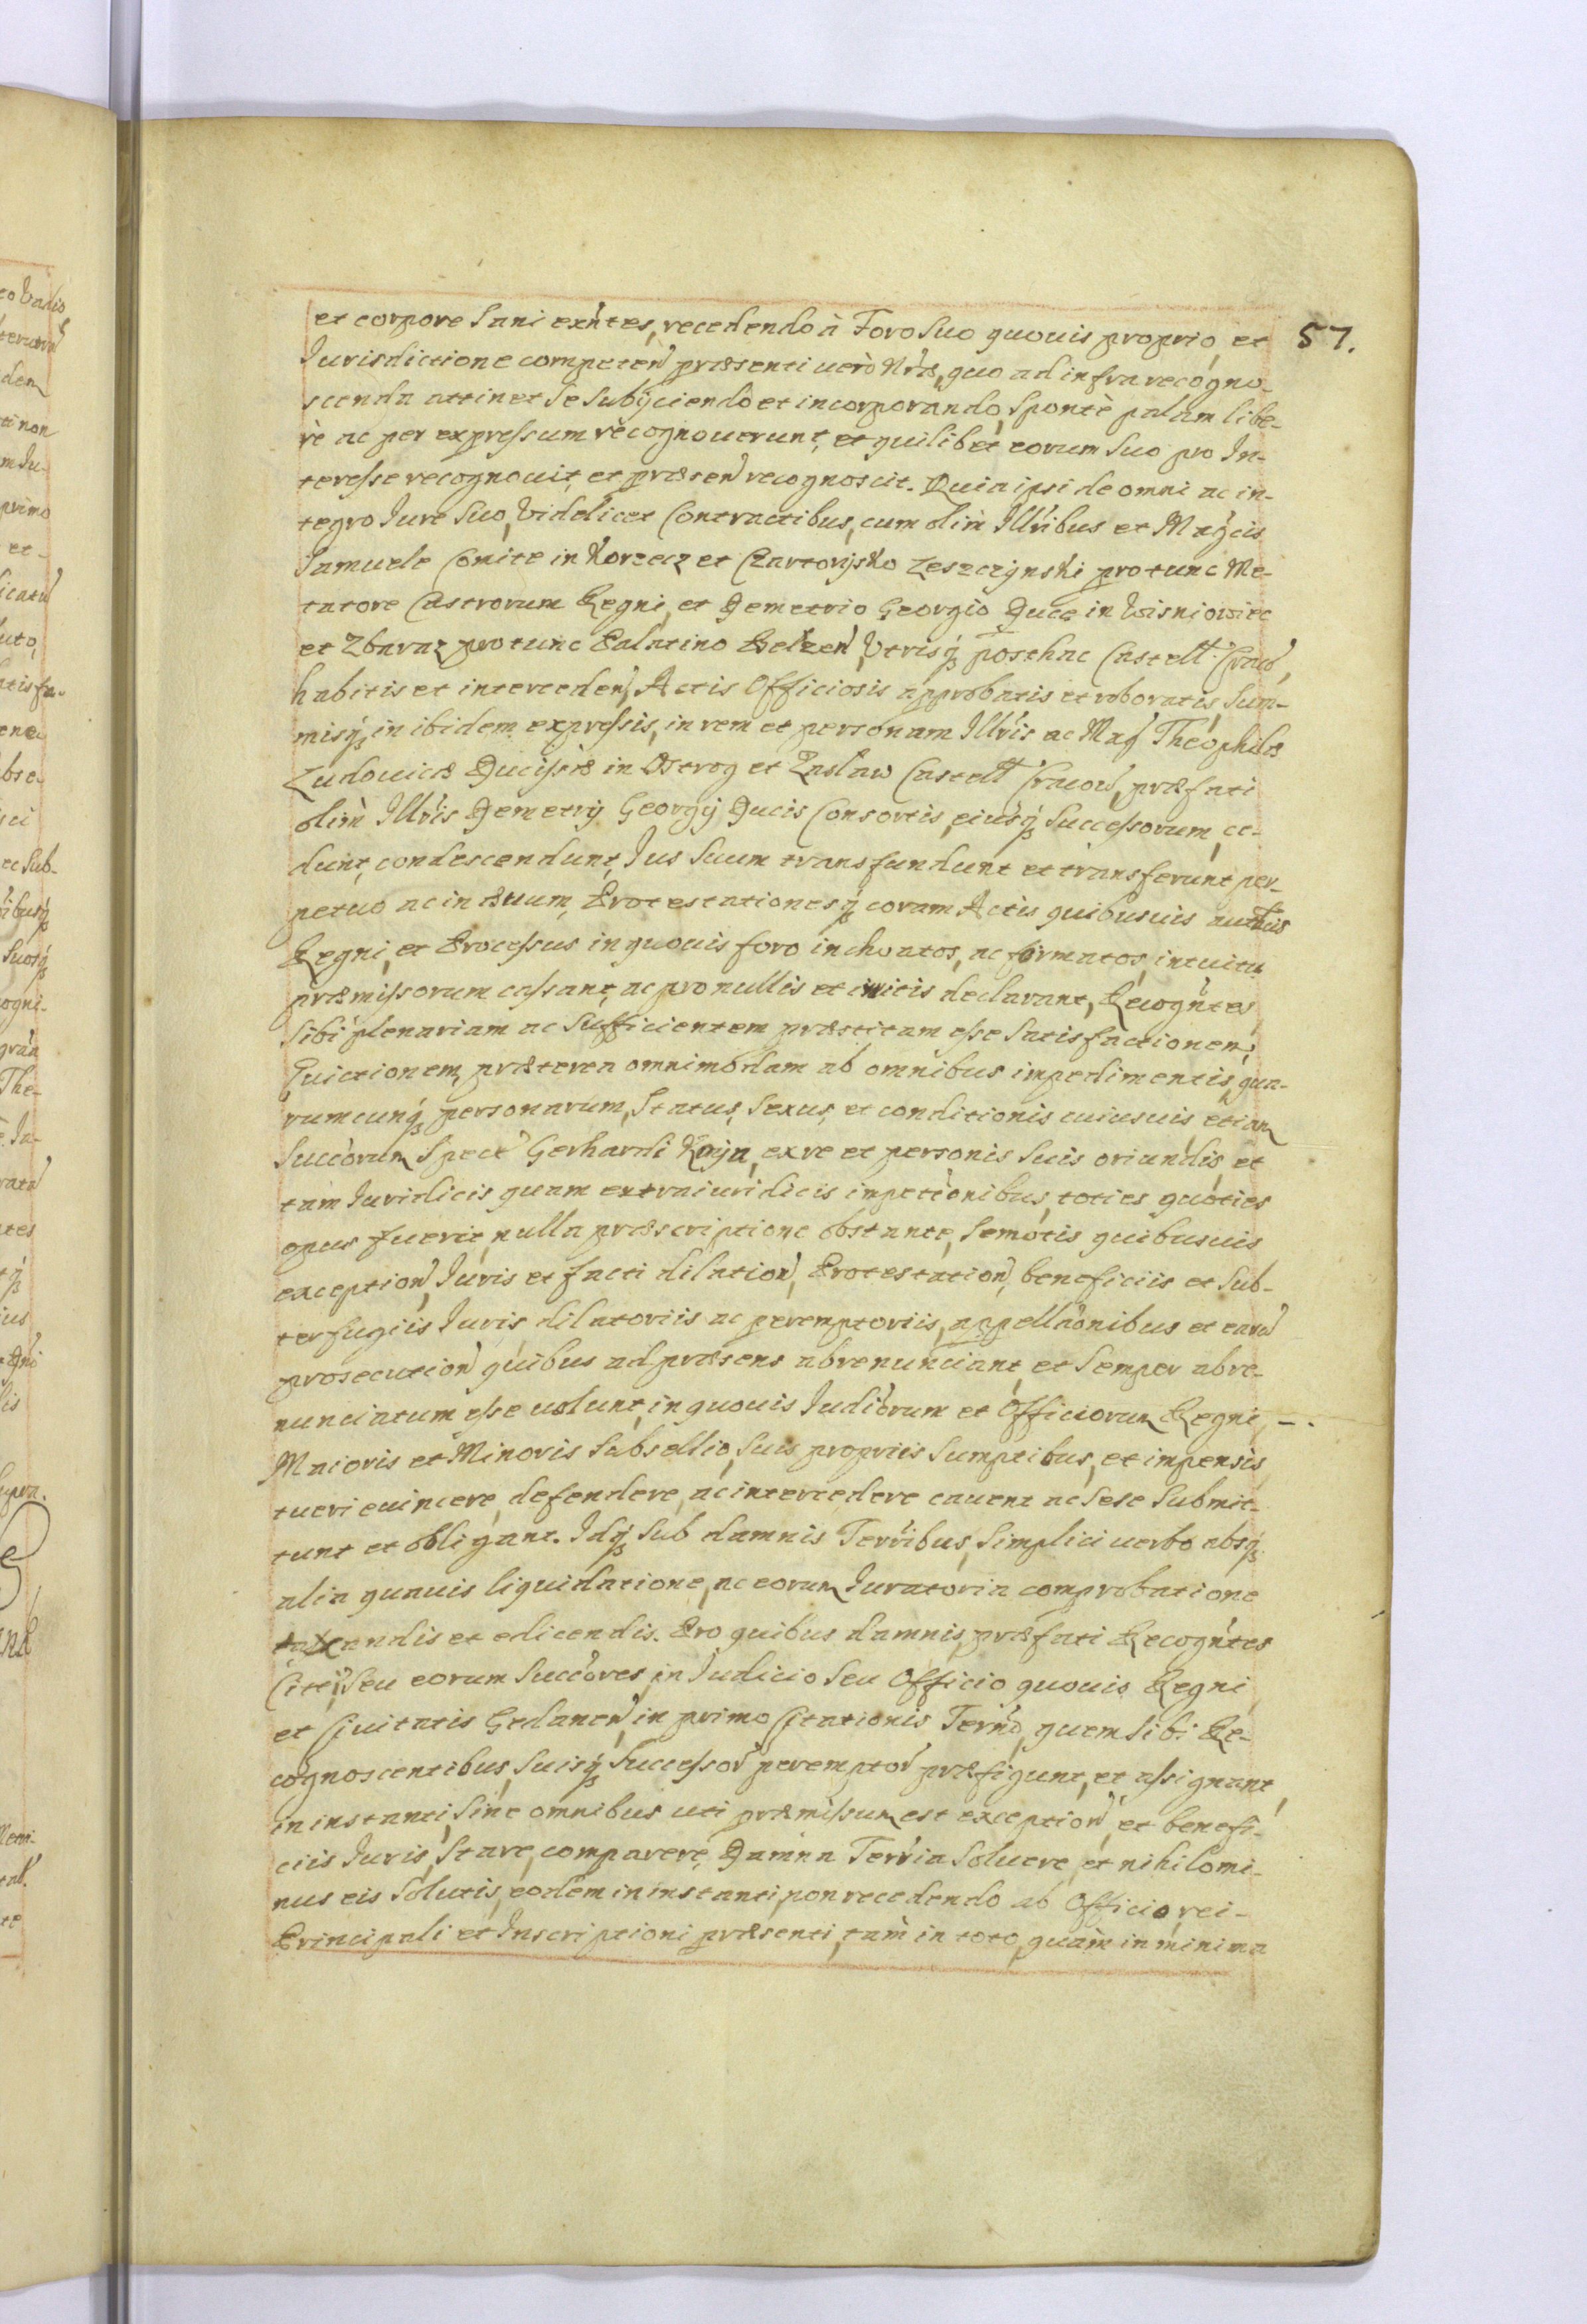 57.
et corpore Sani exñtes, recedendo à Foro Suo quouis proprio, et
Jurisdictione competeñ præsenti uerò Nræ, quo ad infra recogno-
scenda attinet Se Subÿciendo et incorporando, Spontè palam libe-
rè ac per expressum recognouerunt, et quilibet eorum Suo pro In-
teresse recognouit, et præseñ recognoscit. Quia ipsi de omni ac in-
tegro Jure Suo, Videlicet Contractibus, cum olim Illribus et Magcis
Samuele Comite in Korzecz et Czartorÿsko Leszczÿnski protunc Me-
tatore Castrorum Regni, et Demetrio Georgio Duce in Wisniowiec
et Zbaraz protunc Palatino Belzeñ, Vtrisq; posthac Castell: Crac̃,
habitis et intercedeñ, Actis Officiosis approbatis et roboratis, Sum-
misq; in ibidem expressis, in rem et personam Illris ac Mag Theophilæ
Ludouicæ Ducissæ in Ostrog et Zaslaw Castell Cracoũ, præfati
olim Illris Demetrÿ Georgÿ Ducis Consortis, eiusq; Successorum, ce-
dunt, condescendunt, Jus Suum transfundunt et transferunt per-
petuo ac in æuum, Protestationesq; coram Actis quibusuis autcis
Regni, et Processus in quouis foro inchoatos, ac formatos, intuitu
præmissorum cassant, ac pro nullis et irritis declarant, Recogñtes
Sibi plenariam ac Sufficientem præstitam esse Satisfactionem,
Euictionem præterea omnimodam ab omnibus impedimentis, qua-
rumcunq; personarum, Status, Sexus, et conditionis cuiusuis etiam
Succorum Spect Gerhardi Kaÿn, ex re et personis Suis oriundis, et
tam Juridicis quam extraiuridicis impetionibus, toties quoties
opus fuerit, nulla præscriptione obstante, Semotis quibusuis
exceptioñ, Juris et facti dilatioñ, Protestatioñ, beneficiis et Sub-
terfugiis Juris dilatoriis ac peremptoriis, appellaonibus et earũ
prosecutioñ quibus ad præsens abrenunciant, et Semper abre-
nunciatum esse uolunt, in quouis Judiorum et Officiorum Regni, -.
Maioris et Minoris Subsellio, Suis propriis Sumptibus, et impensis
tueri euincere, defendere, ac intercedere cauent ac Sese Submit-
tunt et obligant. Idq; Sub damnis Terribus, Simplici uerbo absq;
alia quauis liquidatione, ac eorum Juratoria comprobatione
taxandis et edicendis. Pro quibus damnis, præfati Recogñtes
Citi, Seu eorum Succores, in Judicio Seu Officio quouis Regni
et Ciuitatis Gedaneñ, in primo Citationis Terno, quem Sibi Re-
cognoscentibus, Suisq; Successoř peremptoř præfigunt, et assignant,
in instanti, Sine omnibus uti præmissum est exceptioñ, et benefi-
ciis Juris, Stare, comparere, Damna Terria Soluere, et nihilomi-
nus eis Solutis, eodem in instanti, non recedendo ab Officio, rei-
Principali et Inscriptioni præsenti, tam in toto, quàm in minima